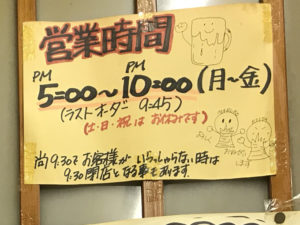 営業時間
PM PM
5:00〜10:00(月〜金)
(ラストオーダー 9:45)
(土・日・祝は お休みです)
尚9:30でお客様が いらっしゃらない時は
9:30閉店となる事もあります。